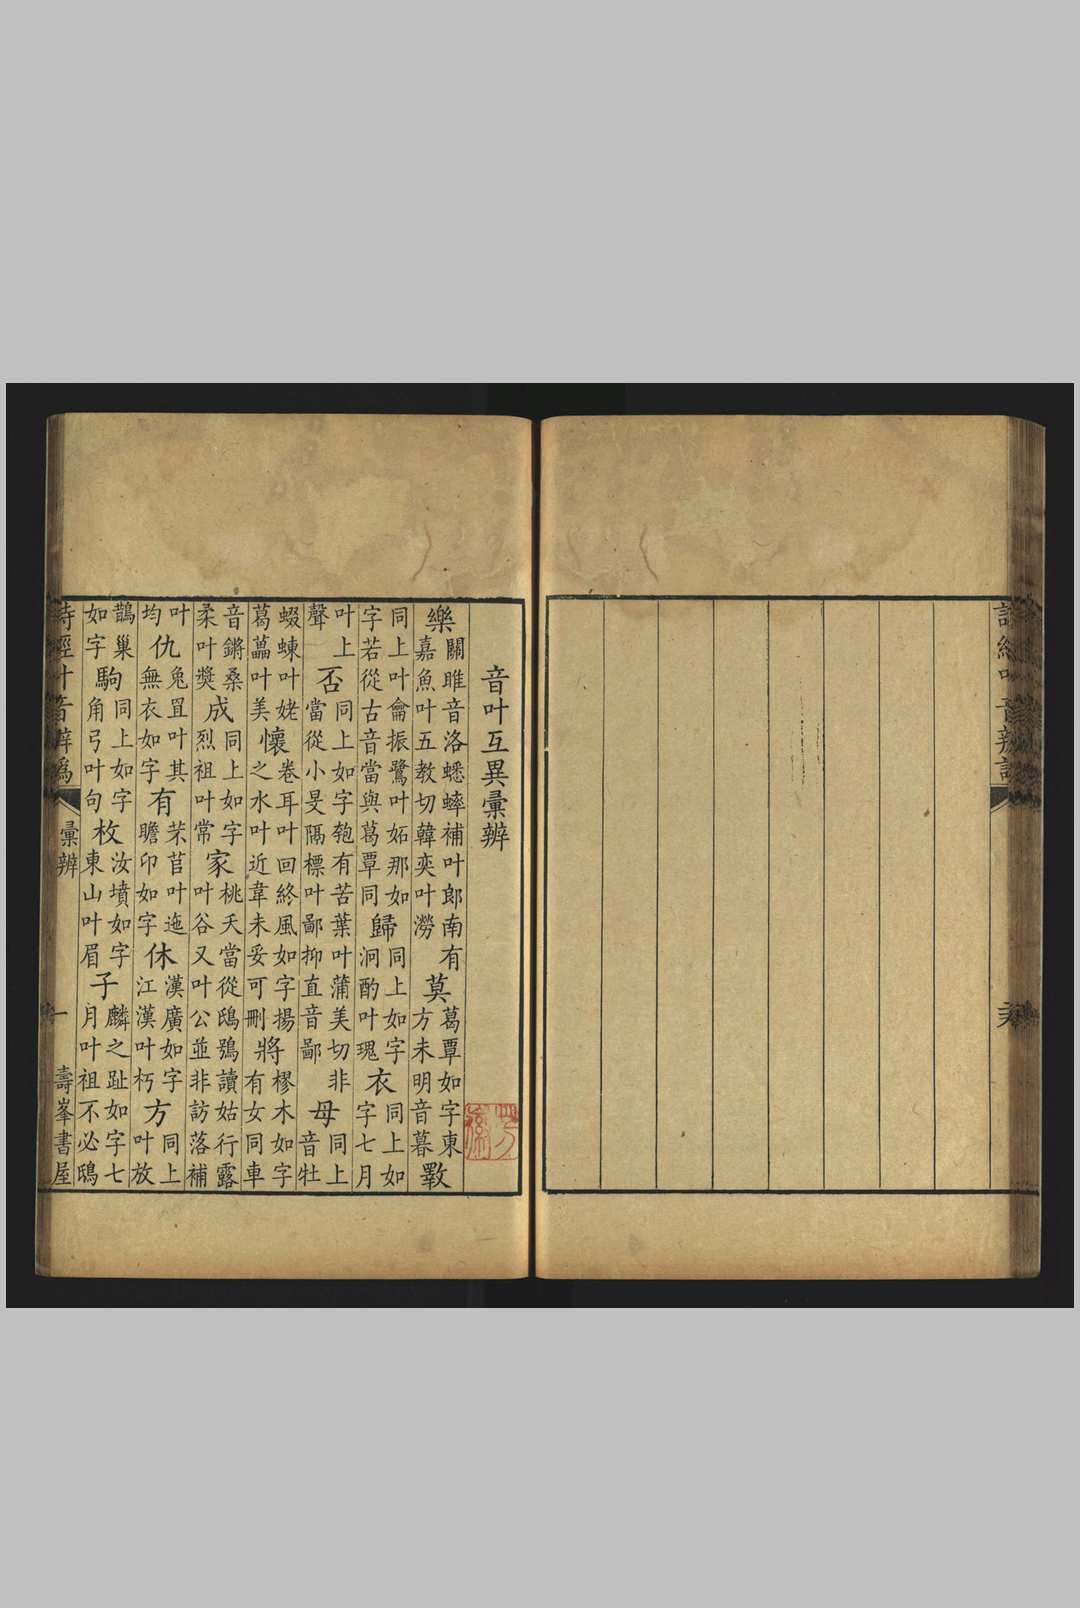 詩經叶音辨譌
音叶互異彙辨
樂關雎音洛蟋蟀補叶郎南有嘉魚叶五教切韓奕叶澇莫葛覃如字東方未明音暮斁
同上叶龠振鷺叶妬那如字若從古音當與葛覃同歸同上如字泂酌叶瑰衣同上如字七月
叶上聲否同上如字匏有苦葉叶蒲美切非當從小旻隔標叶鄙抑直音鄙母同上音牡
蝃蝀叶姥葛藟叶美懷卷耳叶回終風如字揚之水叶近韋未妥可刪將樛木如字有女同車
音鏘桑柔叶奬成同上如字烈祖叶常家桃夭當從鴟鴞讀姑行露叶谷又叶公並非訪落補
叶均仇兔罝叶其無衣如字有芣苢叶迤瞻卬如字休漢廣如字江漢叶朽方同上叶放
鵲巢如字駒同上如字角弓叶句枚汝墳如字東山叶眉子麟之趾如字七月叶祖不必鴟
詩經叶音辨譌 彙辨 一 壽峯書屋